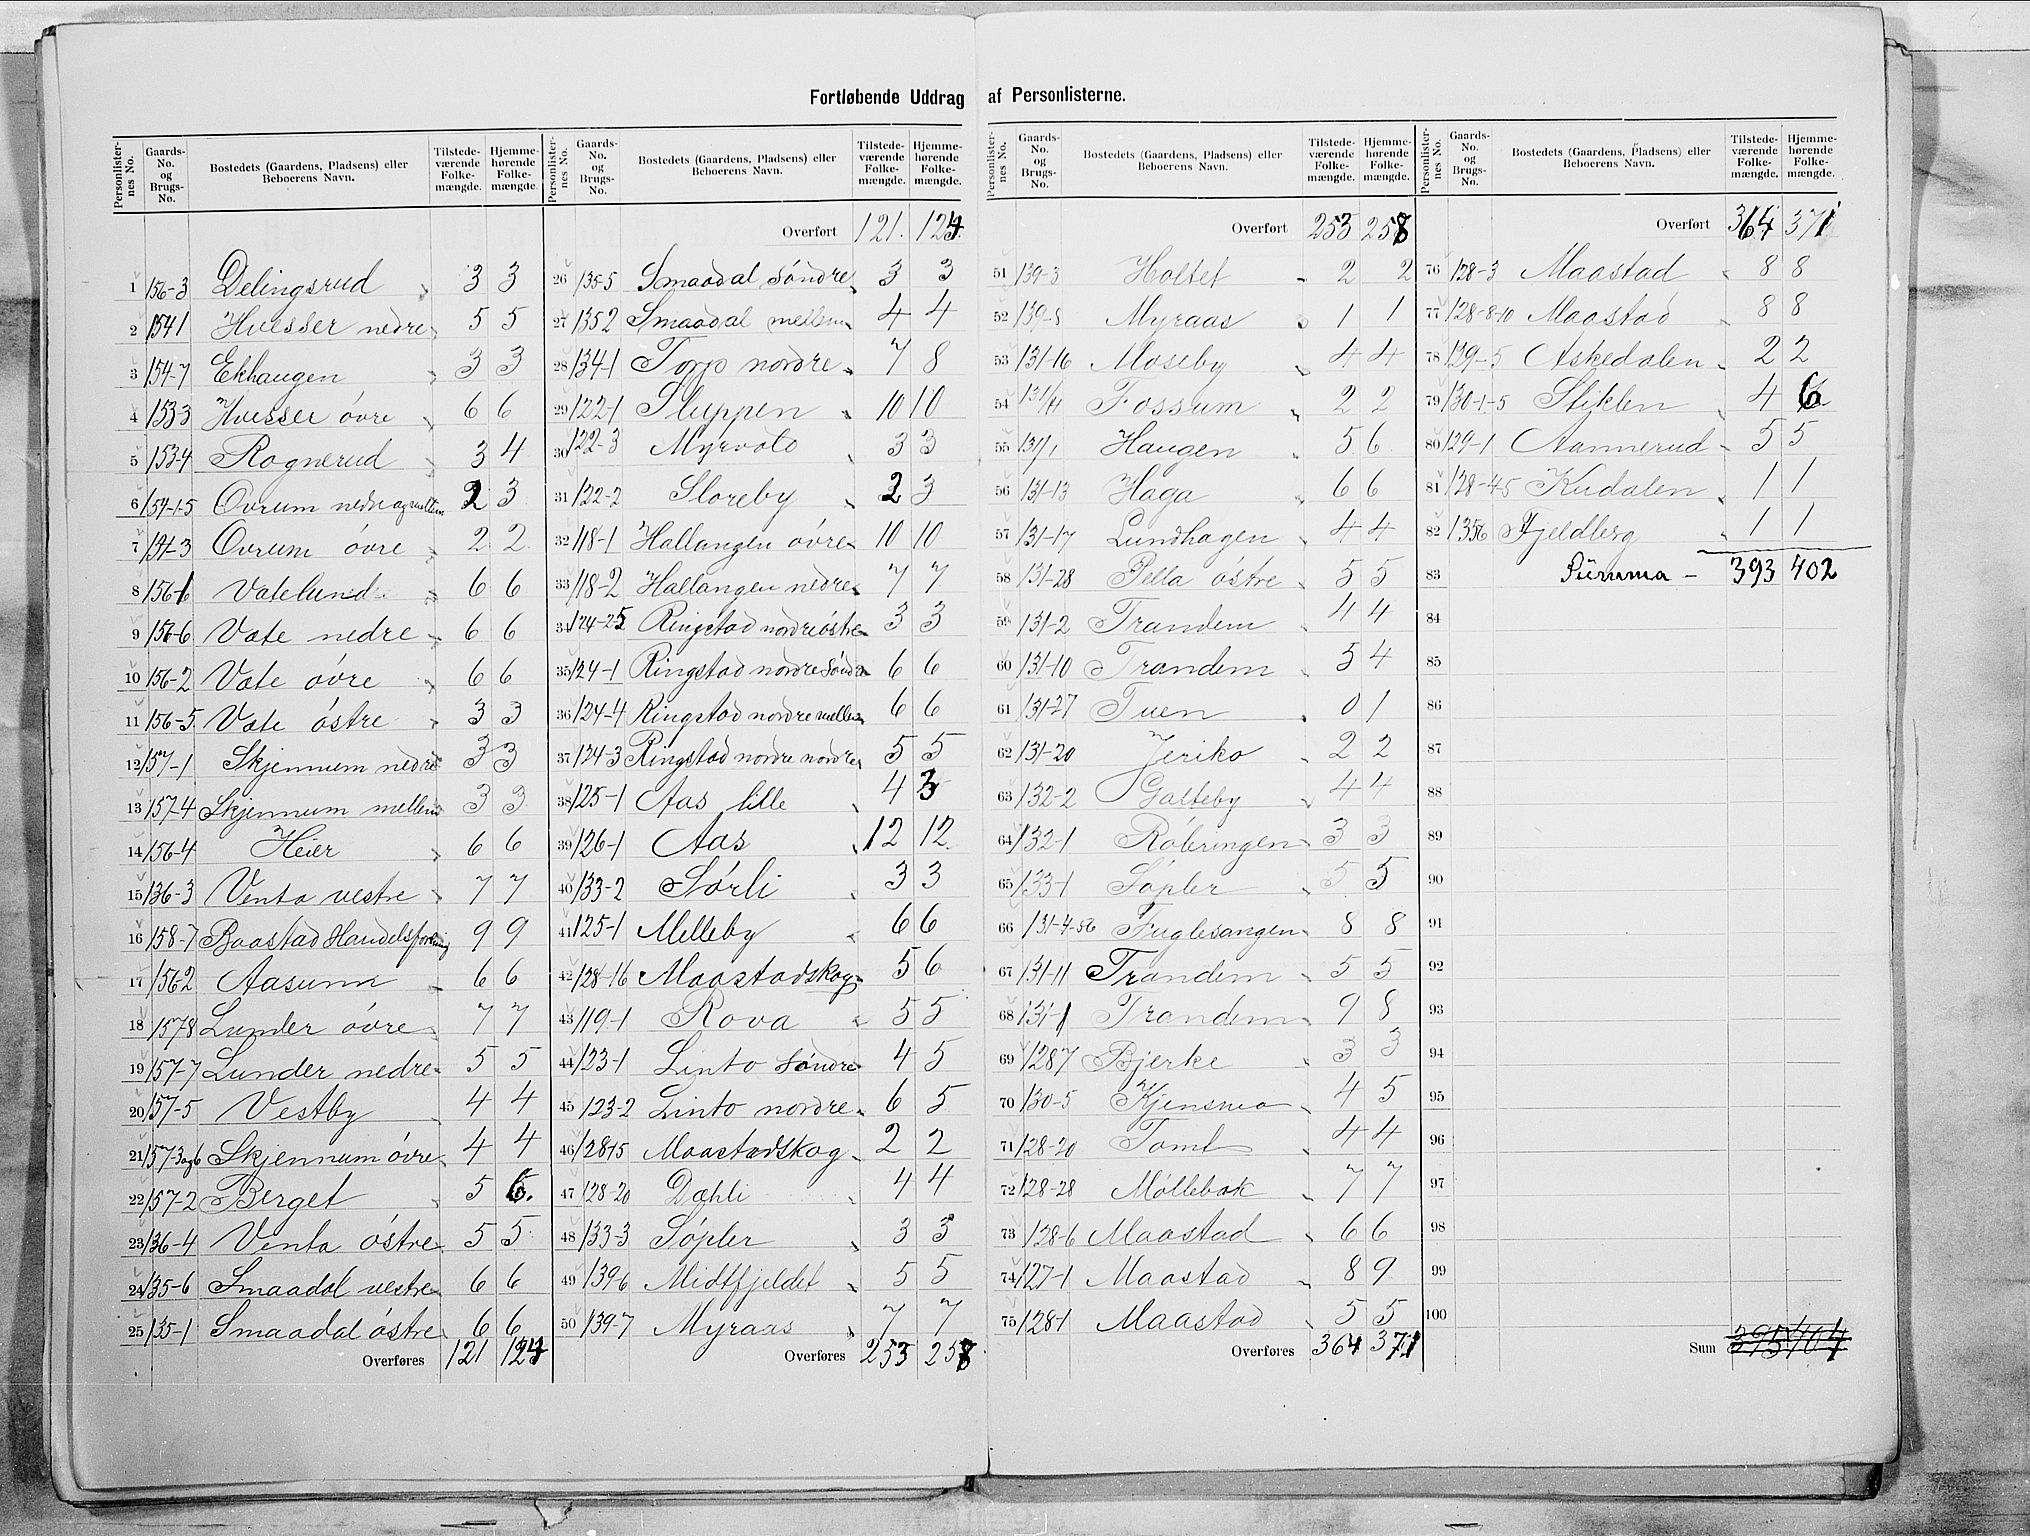 Fortløbende Uddrag af Personlisterne.
Personlister-nes No. | Gaards-No. og Brugs-No. | Bostedets (Gaardens, Pladsens) eller Beboerens Navn. | Tilstede-værende Folke-mængde. | Hjemme-hørende Folke-mængde.
1 156-3 Delingsrud 3 3
2 154 1 Huesser nedre 5 5
3 154-7 Ekhaugen 3 3
4 153 3 Huesser óvre 6 6
5 153-4 Rognerud 3 4
6 154-1-5 Ovrum nedre og mellem 2 3
7 154-3 Ovrum óvre 2 2
8 156-1 Vatelund 6 6
9 156-6 Vate nedre 6 6
10 156-2 Vate óvre 6 6
11 156-5 Vate óstre 3 3
12 157-1 Skjennum nedre 3 3
13 157-4 Skjennum mellem 3 3
14 156-4 Heier 6 6
15 136-3 Venta vestre 7 7
16 158-7 Baastad Handelsforening 9 9
17 156 2 Aasunn 6 6
18 157 8 Lunder óvre 7 7
19 157-7 Lunder nedre 5 5
20 157-5 Vestby 4 4
21 157-3og6 Skjennum óvre 4 4
22 157-2 Berget 5 6
23 136-4 Venta óstre 5 5
24 135-6 Smaadal vestre 6 6
25 135-1 Smaadal óstre 6 6
Overføres 121 124
Personlister-nes No. | Gaards-No. og Brugs-No. | Bostedets (Gaardens, Pladsens) eller Beboerens Navn. | Tilstede-værende Folke-mængde. | Hjemme-hørende Folke-mængde.
Overført 121. 124.
26 135-5 Smaadal Sóndre 3 3
27 135 2 Smaadal mellem 4 4
28 134-1 Torp nordre 7 8
29 122-1 Sluppen 10 10
30 122-3 Myrvold 3 3
31 122-2 Sloreby 2 3
32 118-1 Hallangen óvre 10 10
33 118-2 Hallangen nedre 7 7
34 124-25 Ringstad nordre óstre 3 3
35 124-1 Ringstad nordre Sóndre 6 6
36 124-4 Ringstad nordre mellem 6 6
37 124-3 Ringstad nordre nordre 5 5
38 125-1 Aas lille 4 3
39 126-1 Aas 12 12
40 133-2 Sórli 3 3
41 125-1 Melleby 6 6
42 128-16 Maastadskog 5 6
43 119-1 Rova 5 5
44 123-1 Linto Sóndre 4 5
45 123-2 Linto nordre 6 5
46 128 15 Maastadskog 2 2
47 128-20 Dæhli 4 4
48 133-3 Sópler 3 3
49 139 6 Midtfjeldet 5 5
50 139-7 Myraas 7 7
Overføres 253 258
Personlister-nes No. | Gaards-No. og Brugs-No. | Bostedets (Gaardens, Pladsens) eller Beboerens Navn. | Tilstede-værende Folke-mængde. | Hjemme-hørende Folke-mængde.
Overført 253 258
51 139-3 Holtet 2 2
52 139-8 Myraas 1 1
53 131-16 Moseby 4 4
54 131/11 Fossum 2 2
55 131/1 Haugen 5 6
56 131-13 Haga 6 6
57 131-17 Lundhagen 4 4
58 131-28 Pella óstre 5 5
59 131-2 Trandem 4 4
60 131-10 Trandem 5 4
61 131-27 Tuen 0 1
62 131-20 Jeriko 2 2
63 132-2 Galteby 4 4
64 132-1 Róbringen 3 3
65 133-1 Sópler 5 5
66 131-4-56 Fuglesangen 8 8
67 131-11 Trandem 5 5
68 131-1 Trandem 9 8
69 128 7 Bjerke 3 3
70 130-5 Kjensmo 4 5
71 128-20 Tomt 4 4
72 128-28 Móllebak 7 7
73 128-6 Maastad 6 6
74 127-1 Maastad 8 9
75 128-1 Maastad 5 5
Overføres 364 371
Personlister-nes No. | Gaards-No. og Brugs-No. | Bostedets (Gaardens, Pladsens) eller Beboerens Navn. | Tilstede-værende Folke-mængde. | Hjemme-hørende Folke-mængde.
Overført 364 371
76 128-3 Maastad 8 8
77 128-8-10 Maastad 8 8
78 139-5 Askedalen 2 2
79 130-1-5 Stiklen 4 6
80 129-1 Aannerud 5 5
81 128-45 Kudalen 1 1
82 135 6 Fjeldberg 1 1
83 Summa - 393 402
84
85
86
87
88
89
90
91
92
93
94
95
96
97
98
99
100
Sum 395 404